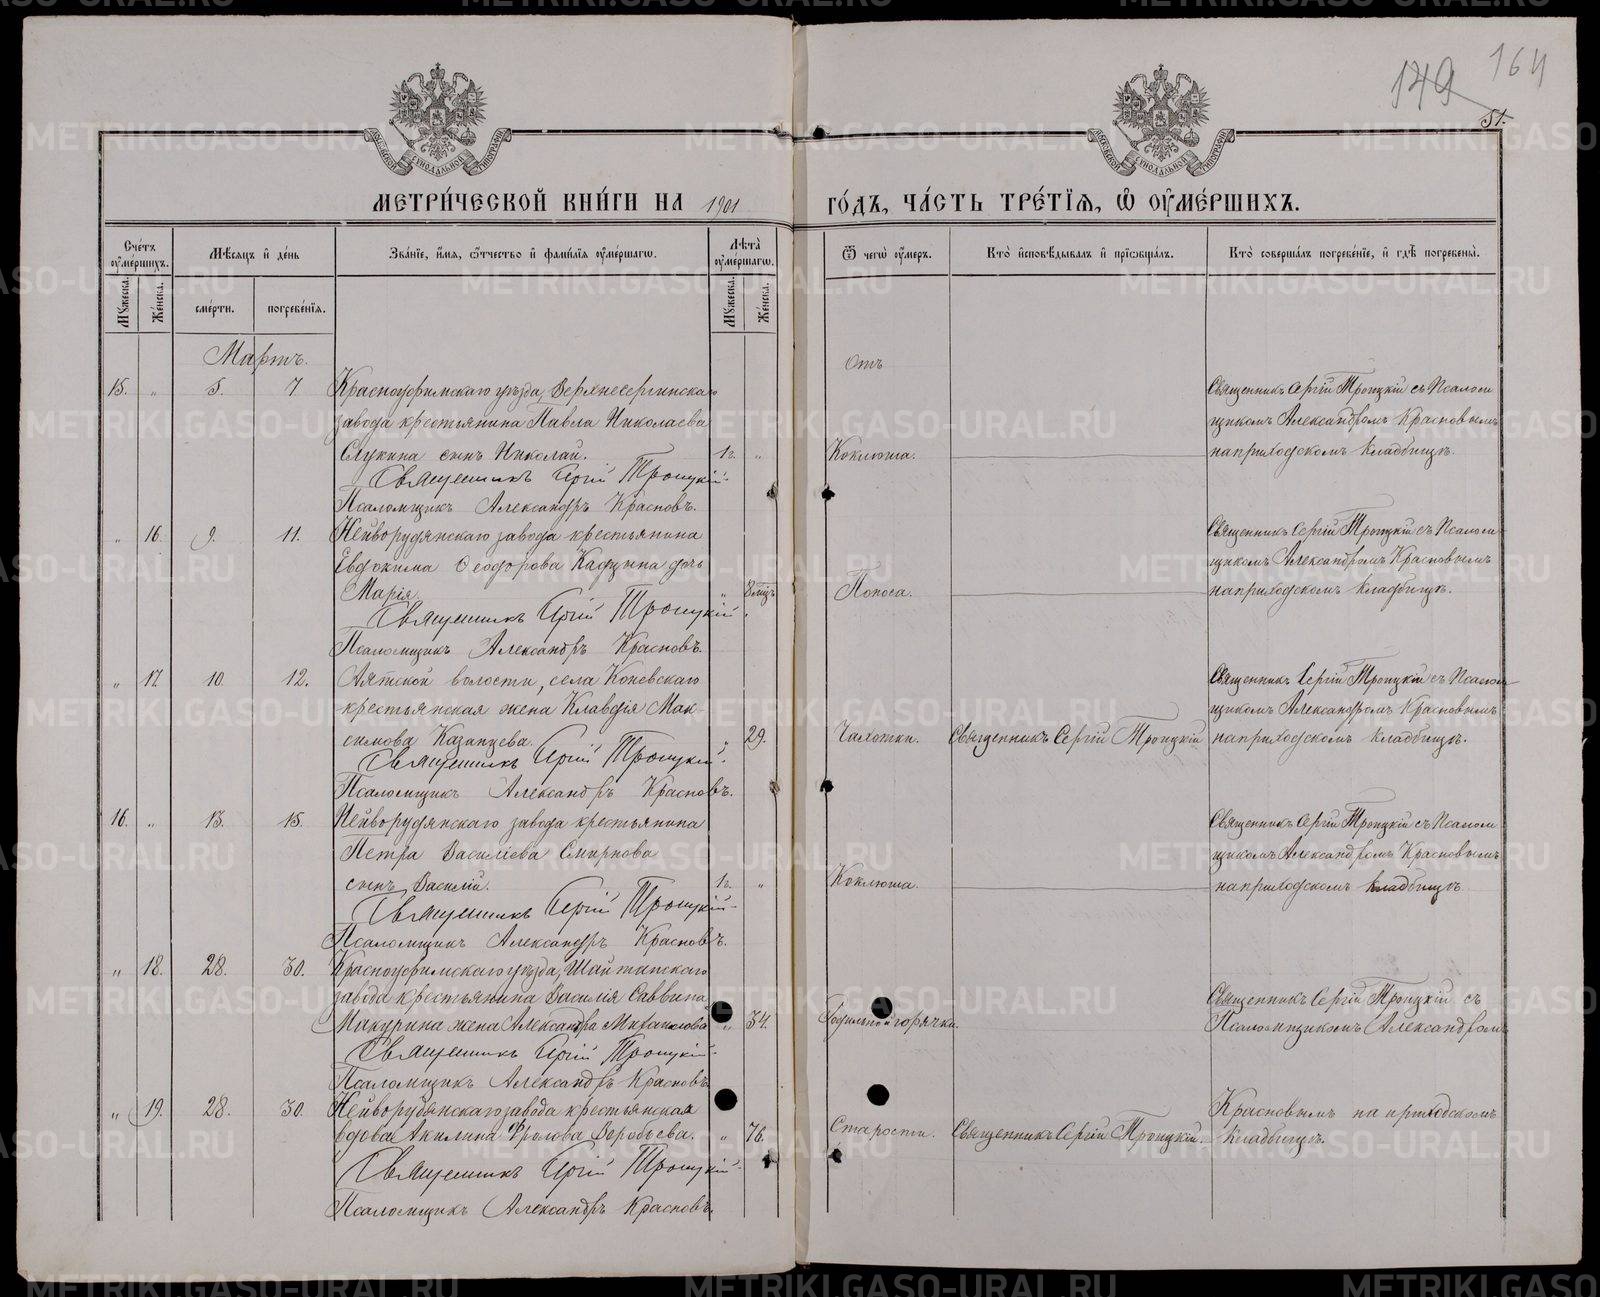 149 164
51.
МОСКОВСКОЙ СУНОДАЛЬНОЙ ТИПОГРАФІИ
МЕТРИ́ЧЕСКОЙ КНИ́ГИ НА 1901 ГО́ДЪ, ЧА́СТЬ ТРЕ́ТІѦ, Ѡ҆ ОУ҆МЕ́РШИХЪ.
Сче́тъ оу҆ме́ршихъ.
Мꙋ́жеска.
Же́нска.
Мѣ́сѧцъ и҆ де́нь
сме́рти.
погребе́нїѧ.
Зва́нїе, и҆́мѧ, ѻ҆́тчество и҆ фамилїѧ оу҆ме́ршагѡ.
Лѣ́та оу҆ме́ршагѡ.
Мꙋ́жеска.
Же́нска.
Ѿ чегѡ̀ оу҆́меръ.
Кто̀ и҆сповѣ́дывалъ и҆ прїѡбща́лъ.
Кто̀ соверша́лъ погребе́нїе, и҆ гдѣ̀ погребены̀.
Мартъ.
Отъ
15. „ 5. 7. Красноуфимскаго уѣзда, Верхнесергинскаго
завода крестьянина Павла Николаева
Слукина сынъ Николай. 1г. „ Коклюша.
Священникъ Сергій Троицкій.
Псаломщикъ Александръ Красновъ.
Священникъ Сергій Троицкій съ Псаломщикомъ Александромъ Красновымъ
на приходскомъ кладбищѣ.
„ 16. 9. 11. Нейворудянскаго завода крестьянина
Евдокима Ѳеодорова Кадцына дочь
Марія. „ 8 мцъ Поноса.
Священникъ Сергій Троицкій.
Псаломщикъ Александръ Красновъ.
Священникъ Сергій Троицкій съ Псаломщикомъ Александромъ Красновымъ
на приходскомъ кладбищѣ.
„ 17. 10. 12. Аятской волости, села Коневскаго
крестьянская жена Клавдія Мак-
симова Казанцева. „ 29. Чахотки. Священникъ Сергій Троицкій
Священникъ Сергій Троицкій.
Псаломщикъ Александръ Красновъ.
Священникъ Сергій Троицкій съ Псаломщикомъ Александромъ Красновымъ
на приходскомъ кладбищѣ.
16. „ 13. 15. Нейворудянскаго завода крестьянина
Петра Василіева Смирнова
сынъ Василій. 1г. „ Коклюша.
Священникъ Сергій Троицкій.
Псаломщикъ Александръ Красновъ.
Священникъ Сергій Троицкій съ Псаломщикомъ Александромъ Красновымъ
на приходскомъ кладбищѣ.
„ 18. 28. 30. Красноуфимскаго уѣзда, Шайтанскаго
завода крестьянина Василія Саввина
Макурина жена Александра Михаилова „ 34. Родильной горячки.
Священникъ Сергій Троицкій.
Псаломщикъ Александръ Красновъ.
Священникъ Сергій Троицкій съ
Псаломщикомъ Александромъ
„ 19. 28. 30. Нейворудянскаго завода крестьянская
вдова Акилина Фролова Воробьева. „ 76. Старости. Священникъ Сергій Троицкій.
Священникъ Сергій Троицкій.
Псаломщикъ Александръ Красновъ.
Красновымъ на приходскомъ
кладбищѣ.
METRIKI.GASO-URAL.RU